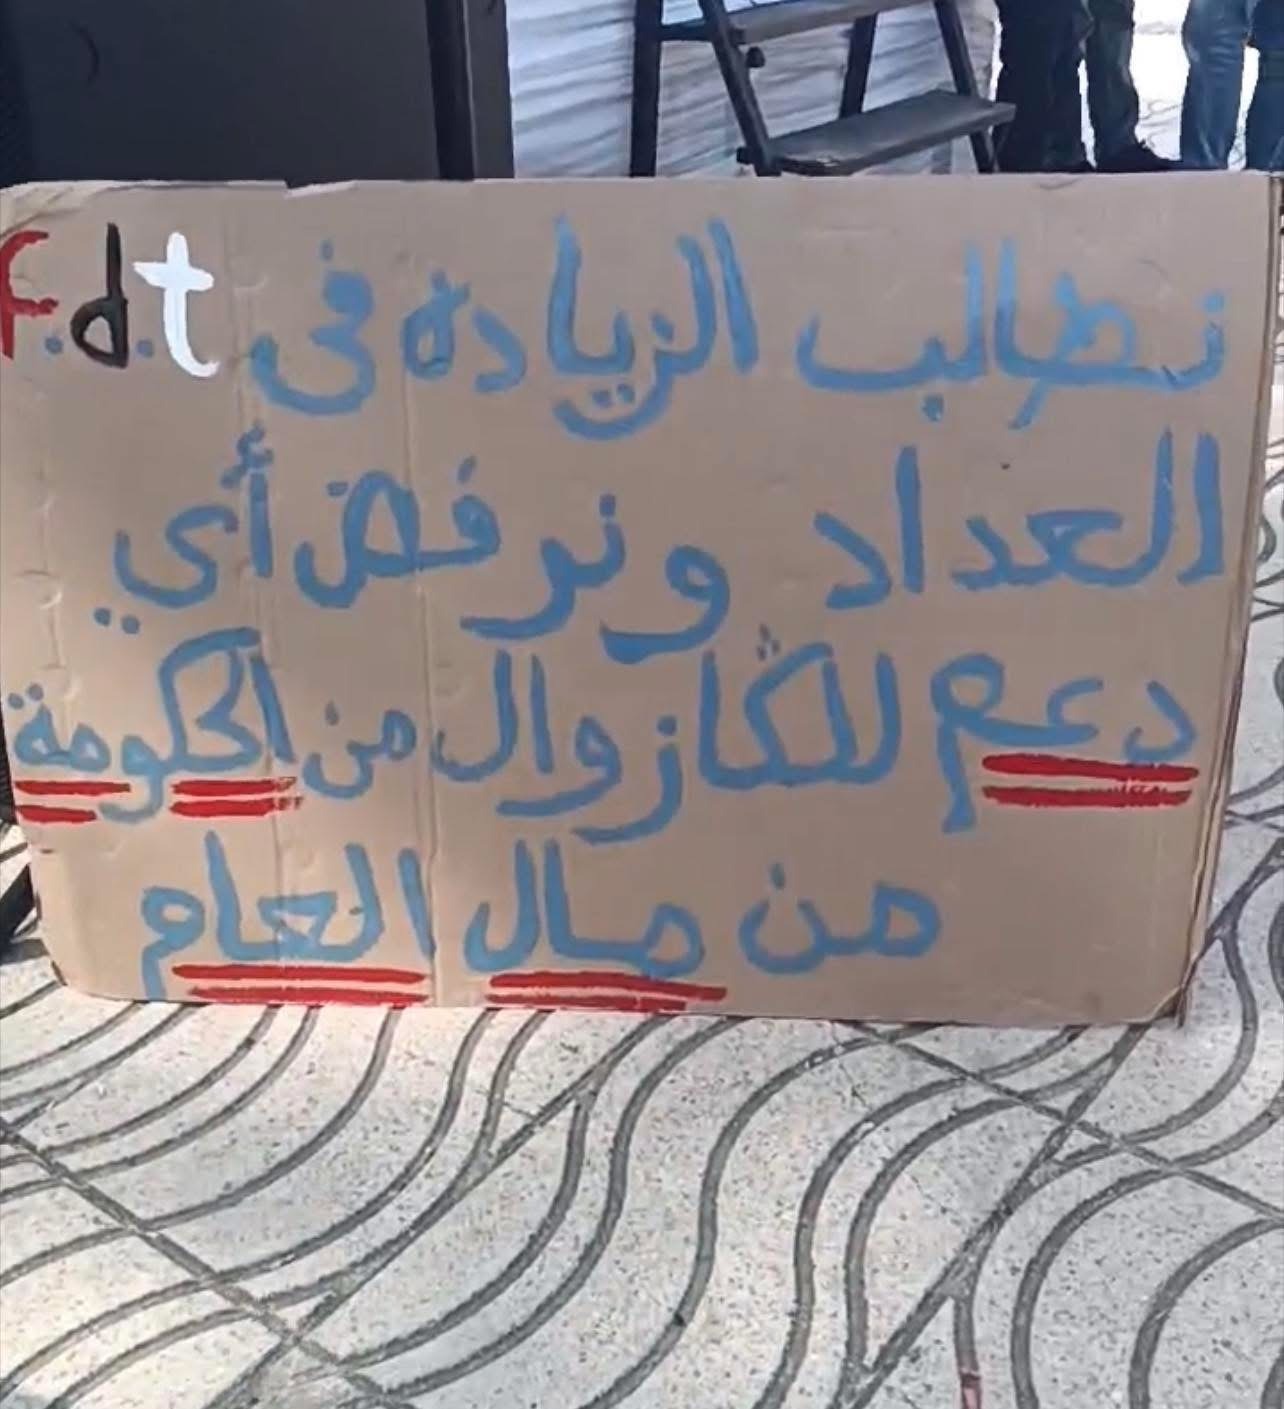 نطالب الزيادة في f.d.t
العداد ونرفض أي
دعم للڭازوال من الحكومة
من مال العام